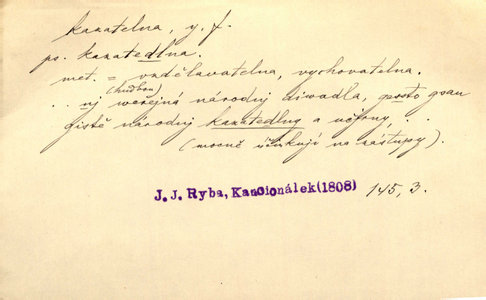 kazatelna, y. f.
ps. kazatedlna.
met. = vzdělavatelna, vychovatelna.
(hudbou)
. . nj weřejná národnj diwadla, gsau
gistě národnj kazatedlny a
(mocně účinkují na zástupy).
J. J. Ryba, Kancionálek (1808) 145, 3.